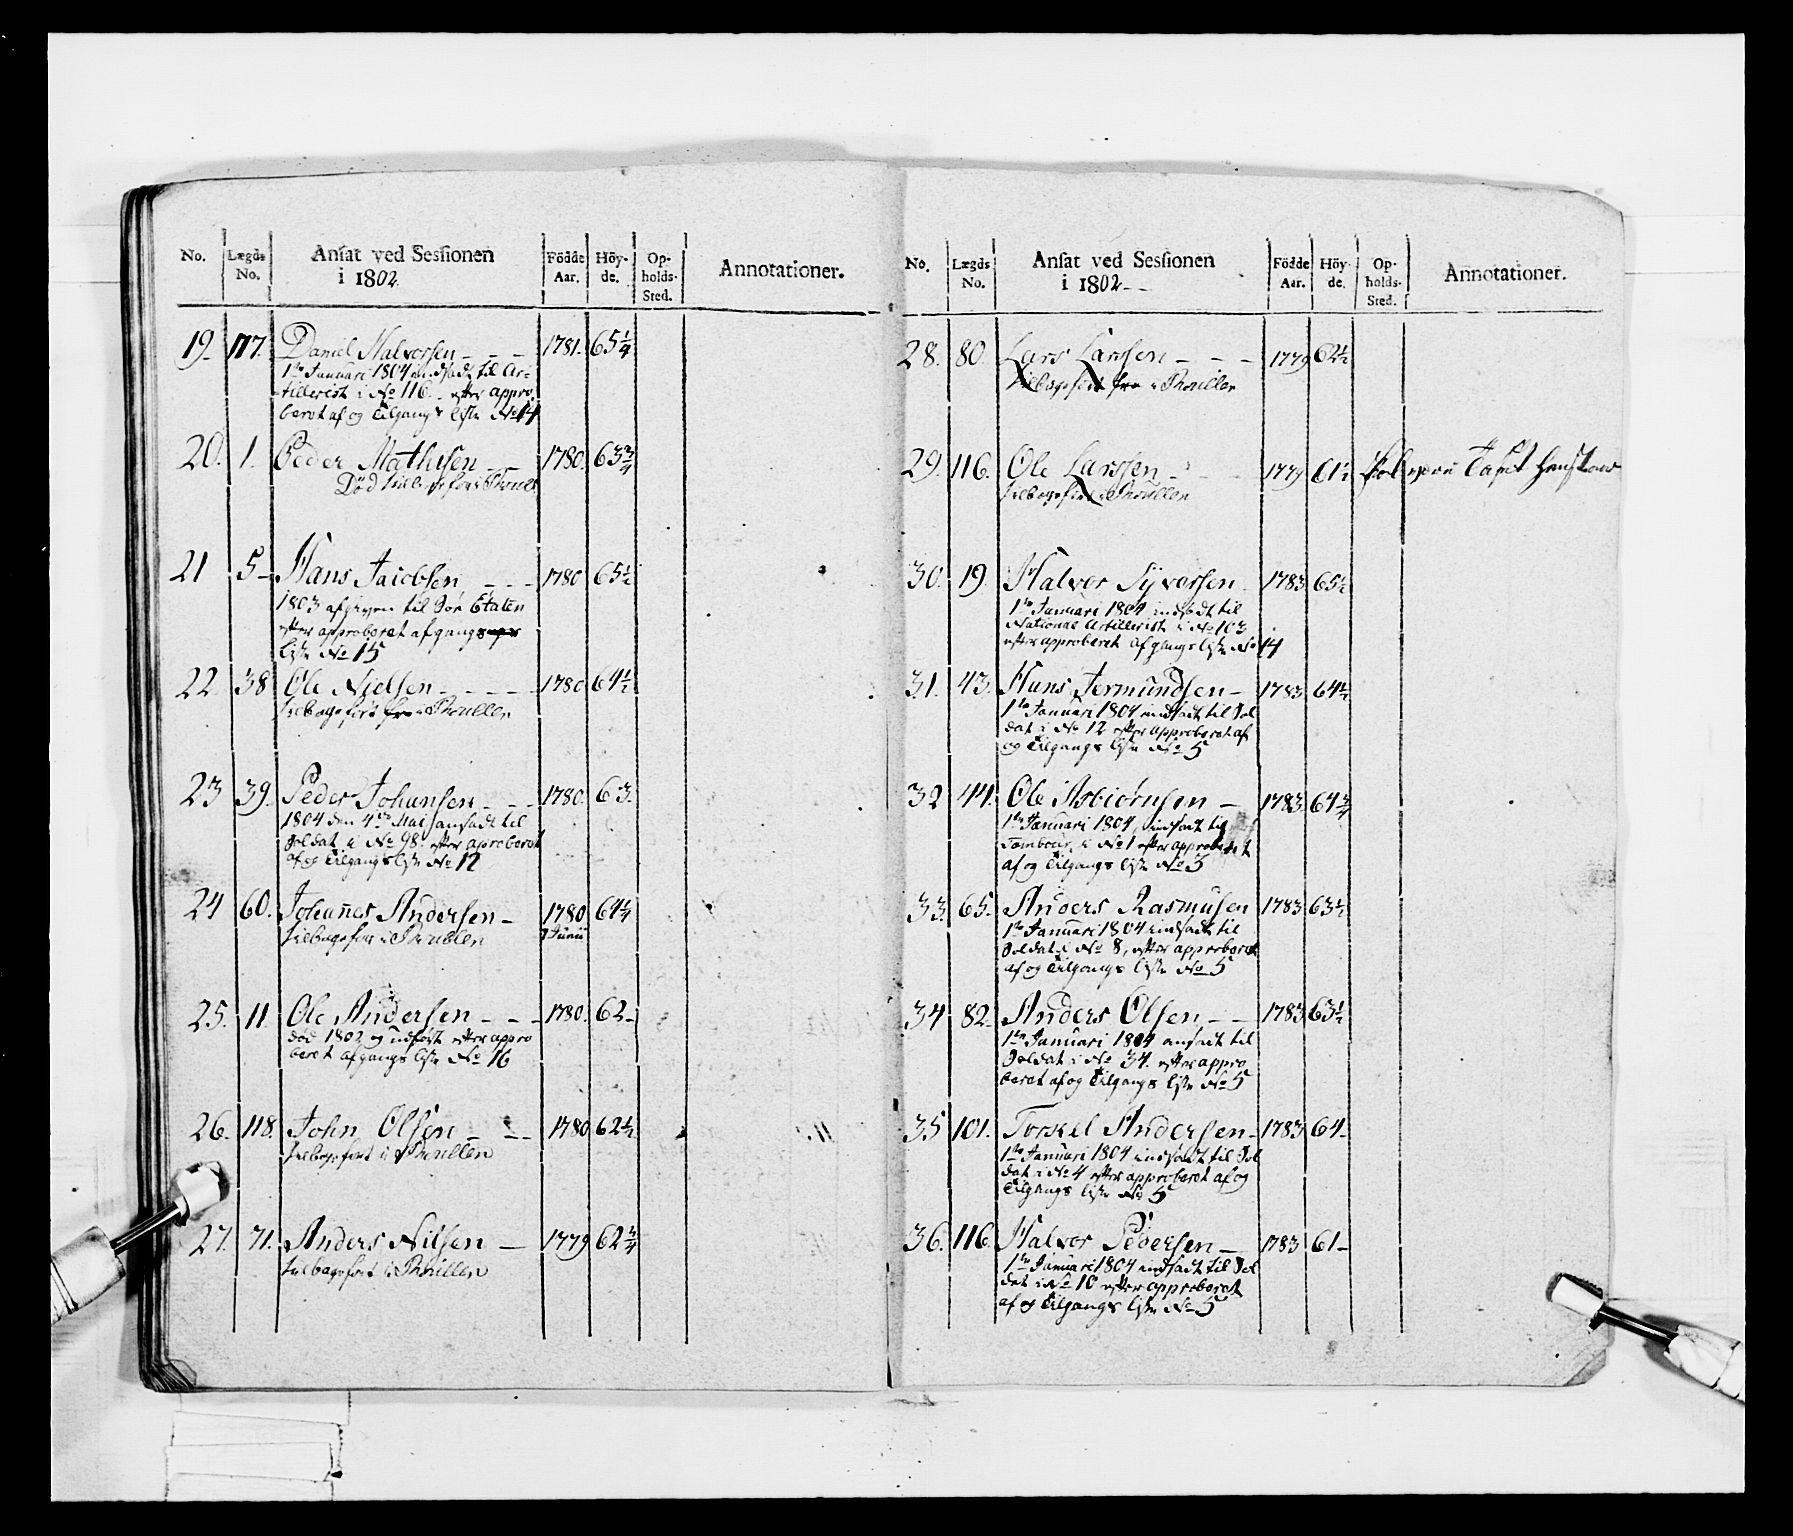 No. Lægds No. Ansat ved Sessionen i 1802 Födde Aar. Höy-de. Op-holds-Sted. Annotationer.
19. 117. Daniel Halvorsen - - - 1781. 65 1/4
1te Januari 1804 indsadt til Ar-
tillerist i No 116. efter appro-
beret af og Tilgangs liste No 14
20. 1. Peder Mathisen - - 1780. 63 3/4
Død
21 5 - Hans Jacobsen - - - 1780 65 1/2
1803 afgiven til Søe Etaten
efter approberet afgangs
liste No 15
22 38 Ole Nielsen - - - - - 1780 64 1/2
tilbageført fra i Roullen
23 39. Peder Johansen - - - 1780. 63.
1804 den 4de Mai ansadt til
Soldat i No 98. efter aproberet
af og Tilgangs liste No 12
24 60. Johannes Andersen - 1780 64 1/4
tilbageført i Roullen
25. 11. Ole Andersen - - - 1780. 62 -
død 1802 og udført efter appro
beret afgangs liste No 16
26. 118. John Olsen - - - 1780 62 1/2
tilbageført i Roullen
27. 71. Anders Nilsen - 1779 62 3/4
tilbageført i Roullen
No. Lægds No. Ansat ved Sessionen i 1802 - - Födde Aar. Höy-de. Op-holds-Sted. Annotationer.
28. 80. Lars Larssen - - - 1779 62 1/2
tilbageført fra i Roullen
29. 116. Ole Larssen - - - 1779 61 1/2
tilbageført i Roullen
30. 19. Halvor Syversen 1783 65 1/2
1te Januari 1804 indsadt til
National Artillerist i No 103
efter approberet afgangs liste No 14
31. 43. Hans Jermundsen - 1783 64 1/2
1te Januari 1804 indsadt til Sol
dat i No 12 efter approberet af
og Tilgangs liste No 5
32 44. Ole Asbiørnsen - 1783 64 3/4
1te Januari 1804, indsadt til
Tambour, i No 1 efter approberet
af og Tilgangs liste No 5
33. 65. Anders Rasmusen 1783 63 1/2
1te Januari 1804 indsadt til
Soldat i No 8, efter approberet
af og Tilgangs liste No 5
34 82. Anders Olsen - - 1783 63 1/2
1te Januari 1804 ansadt til
Soldat i No 34. efter appro
beret af og Tilgangs liste No 5
35 101. Torkel Andersen - 1783 64 -
1te Januari 1804 indsadt til Sol
dat i No 4 efter approberet af og
Tilgangs liste No 5
36. 116. Halvor Pedersen - 1783 61 -
1te Januari 1804 indsadt til Sol
dat i No 10 efter approberet
af og Tilgangs liste No 5